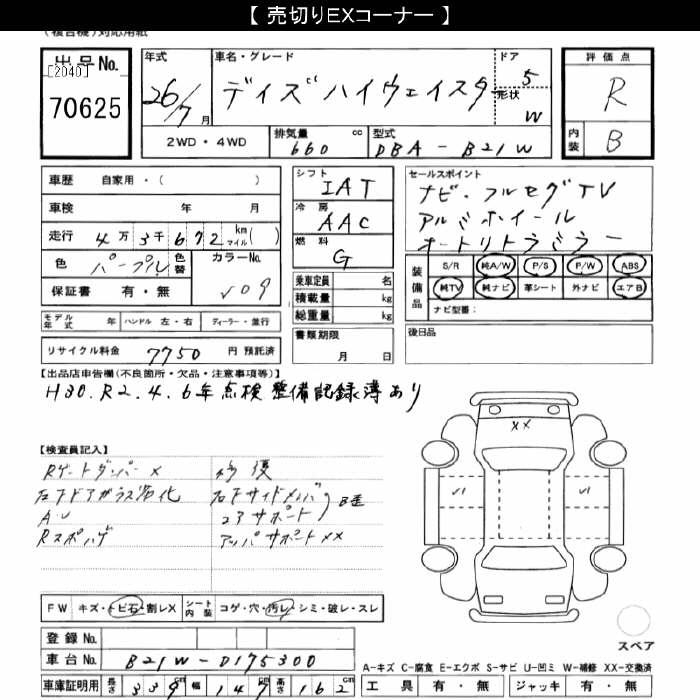 【 売切りEXコーナー 】
出品No.
[2040]
70625
年式
26/7月
車名・グレード
デイズ ハイウェイスター
ドア
5
形状
W
評価点
R
内装
B
2WD・4WD
排気量
660 cc
型式
DBA-B21W
車歴 自家用・( )
車検 年 月
走行 4万3千672 km マイル( )
色 パープル 色替
カラーNo.
V09
保証書 有・無
シフト
IAT
冷房
AAC
燃料
G
乗車定員 名
積載量 kg
総重量 kg
セールスポイント
ナビ・フルセグTV
アルミホイール
オートリトラミラー
装備品
S/R 純A/W P/S P/W ABS
純TV 純ナビ 革シート 外ナビ エアB
ナビ型番:
モデル年式 年 ハンドル 左・右 ディーラー・並行
リサイクル料金 7750 円 預託済
書類期限
月 日
後日品
【出品店申告欄(不良箇所・欠品・注意事項等)】
H30.R2.4.6年点検整備記録簿あり
【検査員記入】
Rゲートダンパー×
右下ドアガラス劣化
A・U
Rスポハゲ
修復
コアサポート
アッパサポートXX
XX
FW キズ・トビ石・割レX シート内装 コゲ・穴・汚レ・シミ・破レ・スレ
登録No.
車台No. B21W-0175300
車庫証明用 長さ 339cm 幅 147cm 高さ 162cm
スペア
A-キズ C-腐食 E-エクボ S-サビ U-凹ミ W-補修 XX-交換済
工具 有・無 ジャッキ 有・無